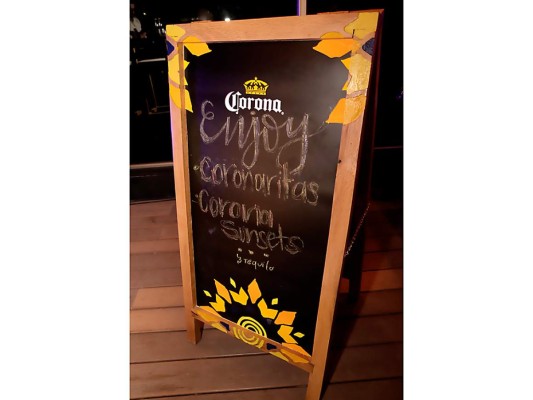 Corona
Enjoy
- Coronaritas
- Corona
Sunsets
y Tequila